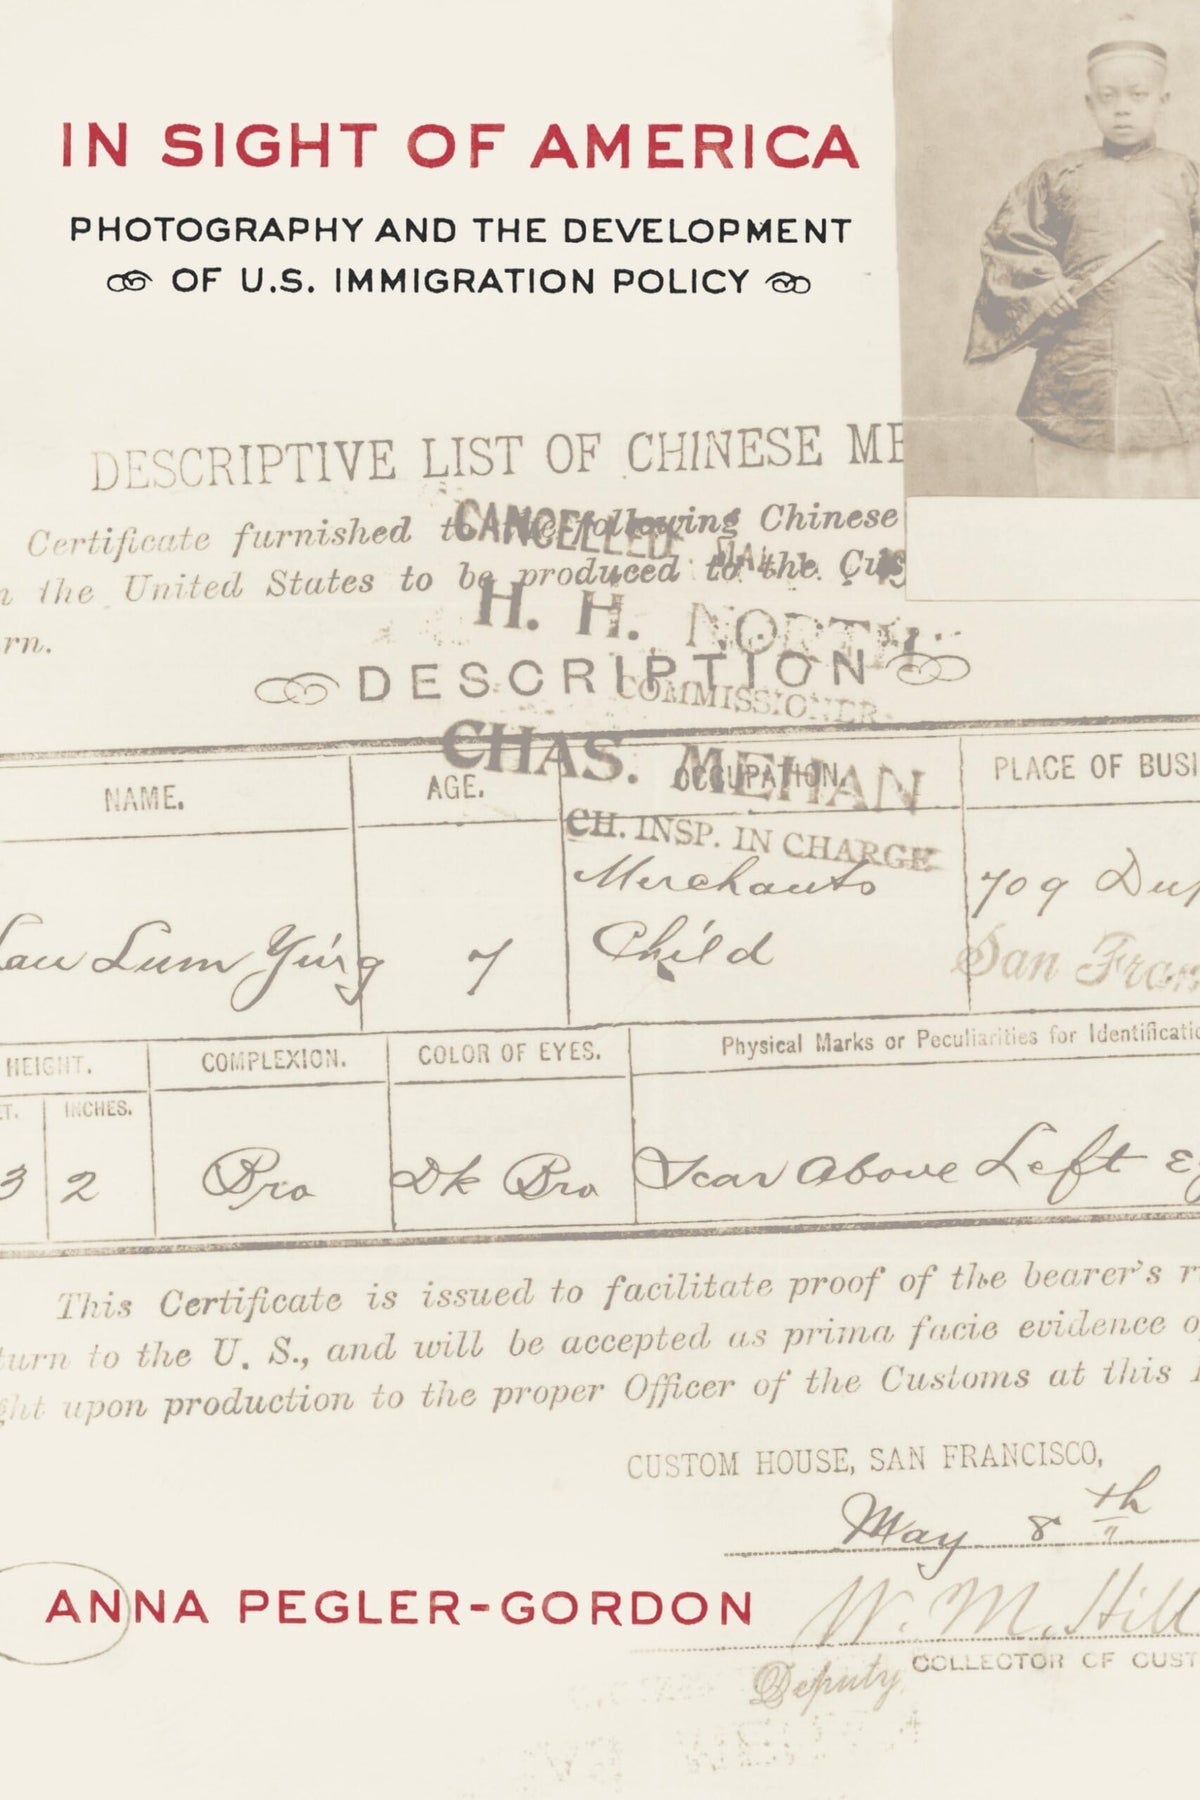 IN SIGHT OF AMERICA
PHOTOGRAPHY AND THE DEVELOPMENT
OF U.S. IMMIGRATION POLICY
DESCRIPTIVE LIST OF CHINESE ME
Certificate furnished to the following Chinese
CANCELLED
n the United States to be produced to the Cus
rn.
H. H. NORTH
DESCRIPTION
COMMISSIONER
CHAS. MEHAN
CH. INSP. IN CHARGE
NAME. AGE. OCCUPATION. PLACE OF BUSI
Merchants 709 Dup
Lau Lum Ying 7 Child San Fran
HEIGHT. COMPLEXION. COLOR OF EYES. Physical Marks or Peculiarities for Identificatio
T. INCHES.
3 2 Bro Dk Bro Scar Above Left Ey
This Certificate is issued to facilitate proof of the bearer's r
turn to the U. S., and will be accepted as prima facie evidence o
ght upon production to the proper Officer of the Customs at this
CUSTOM HOUSE, SAN FRANCISCO,
May 8th
ANNA PEGLER-GORDON
W. M. Hill
Deputy COLLECTOR OF CUST